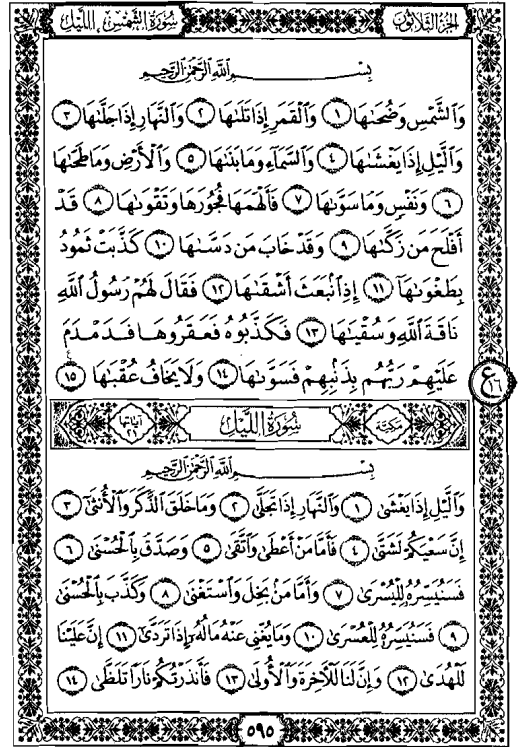 سُورَةُ الشَّمْسِ، اللَّيْلِ
الجزءُ الثَّلَاثُونَ
بِسْمِ اللَّهِ الرَّحْمَٰنِ الرَّحِيمِ
وَالشَّمْسِ وَضُحَىٰهَا ١ وَالْقَمَرِ إِذَا تَلَىٰهَا ٢ وَالنَّهَارِ إِذَا جَلَّىٰهَا ٣
وَالَّيْلِ إِذَا يَغْشَىٰهَا ٤ وَالسَّمَآءِ وَمَا بَنَىٰهَا ٥ وَالْأَرْضِ وَمَا طَحَىٰهَا
٦ وَنَفْسٍ وَمَا سَوَّىٰهَا ٧ فَأَلْهَمَهَا فُجُورَهَا وَتَقْوَىٰهَا ٨ قَدْ
أَفْلَحَ مَن زَكَّىٰهَا ٩ وَقَدْ خَابَ مَن دَسَّىٰهَا ١٠ كَذَّبَتْ ثَمُودُ
بِطَغْوَىٰهَآ ١١ إِذِ انۢبَعَثَ أَشْقَىٰهَا ١٢ فَقَالَ لَهُمْ رَسُولُ اللَّهِ
نَاقَةَ اللَّهِ وَسُقْيَٰهَا ١٣ فَكَذَّبُوهُ فَعَقَرُوهَا فَدَمْدَمَ
عَلَيْهِمْ رَبُّهُم بِذَنۢبِهِمْ فَسَوَّىٰهَا ١٤ وَلَا يَخَافُ عُقْبَٰهَا ١٥
ع ١٦
مكيّة
سُورَةُ اللَّيْلِ
آياتها ٢١
بِسْمِ اللَّهِ الرَّحْمَٰنِ الرَّحِيمِ
وَالَّيْلِ إِذَا يَغْشَىٰ ١ وَالنَّهَارِ إِذَا تَجَلَّىٰ ٢ وَمَا خَلَقَ الذَّكَرَ وَالْأُنثَىٰٓ ٣
إِنَّ سَعْيَكُمْ لَشَتَّىٰ ٤ فَأَمَّا مَنْ أَعْطَىٰ وَاتَّقَىٰ ٥ وَصَدَّقَ بِالْحُسْنَىٰ ٦
فَسَنُيَسِّرُهُۥ لِلْيُسْرَىٰ ٧ وَأَمَّا مَنۢ بَخِلَ وَاسْتَغْنَىٰ ٨ وَكَذَّبَ بِالْحُسْنَىٰ
٩ فَسَنُيَسِّرُهُۥ لِلْعُسْرَىٰ ١٠ وَمَا يُغْنِي عَنْهُ مَالُهُۥٓ إِذَا تَرَدَّىٰٓ ١١ إِنَّ عَلَيْنَا
لَلْهُدَىٰ ١٢ وَإِنَّ لَنَا لَلْآخِرَةَ وَالْأُولَىٰ ١٣ فَأَنذَرْتُكُمْ نَارًا تَلَظَّىٰ ١٤
٥٩٥